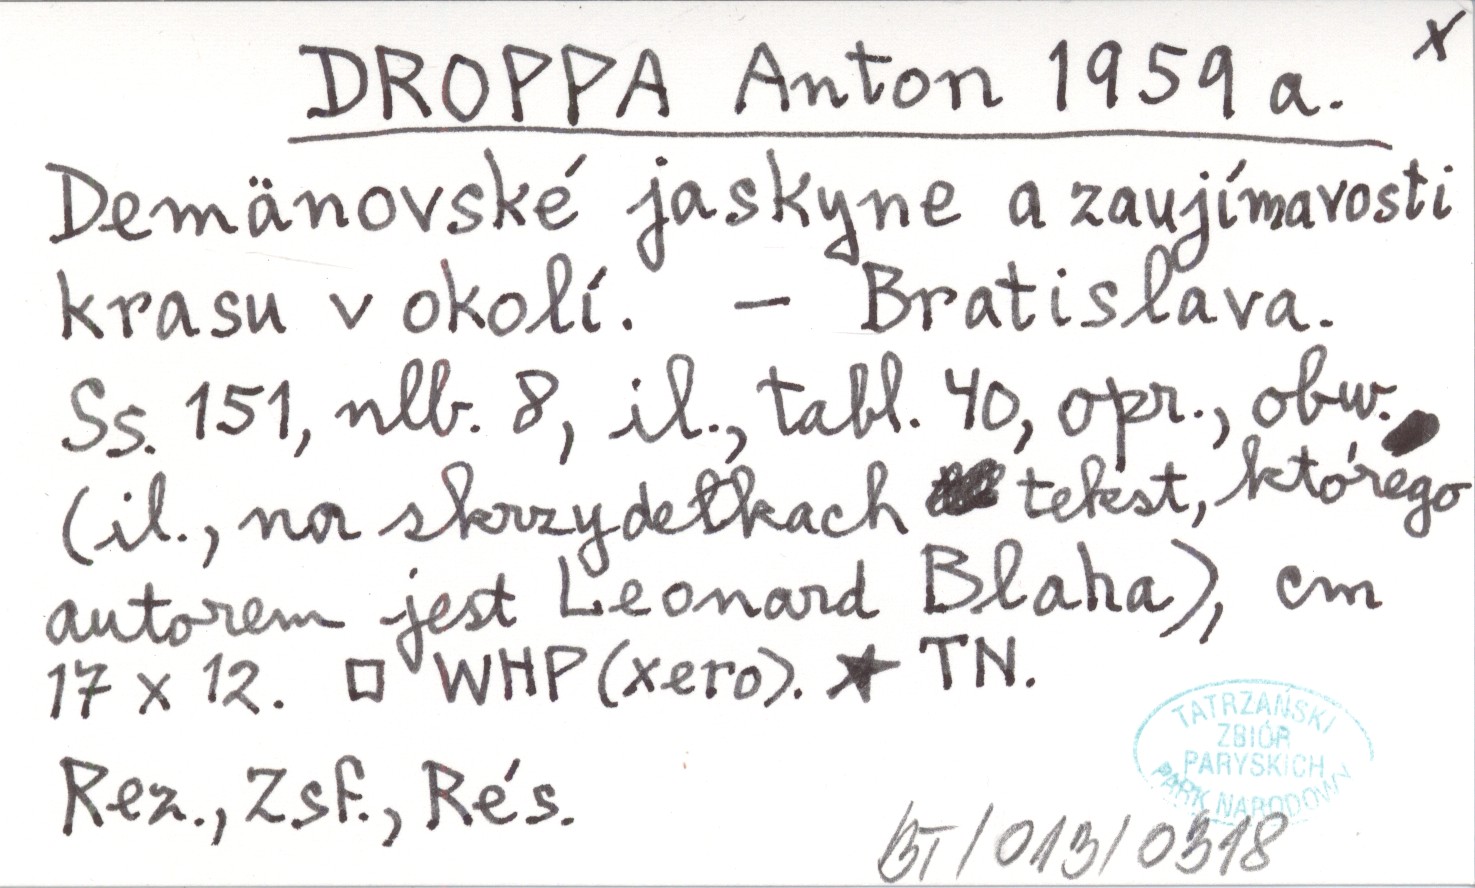 x
DROPPA Anton 1959 a.
Demänovské jaskyne a zaujímavosti
krasu v okolí. – Bratislava.
Ss. 151, nlb. 8, il., tabl. 40, opr., obw.
(il., na skrzydełkach tekst, którego
autorem jest Leonard Blaha), cm
17 x 12. □ WHP (xero). ★ TN.
Rez., Zsf., Rés.
TATRZAŃSKI
ZBIÓR
PARYSKICH
PARK NARODOWY
BT/013/0318